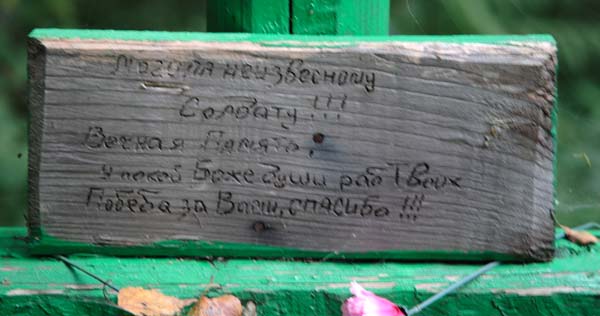 Могила неизвесному
Солдату!!!
Вечная Память!
Упокой Боже души раб Твоих
Победа за Вами, спасибо!!!